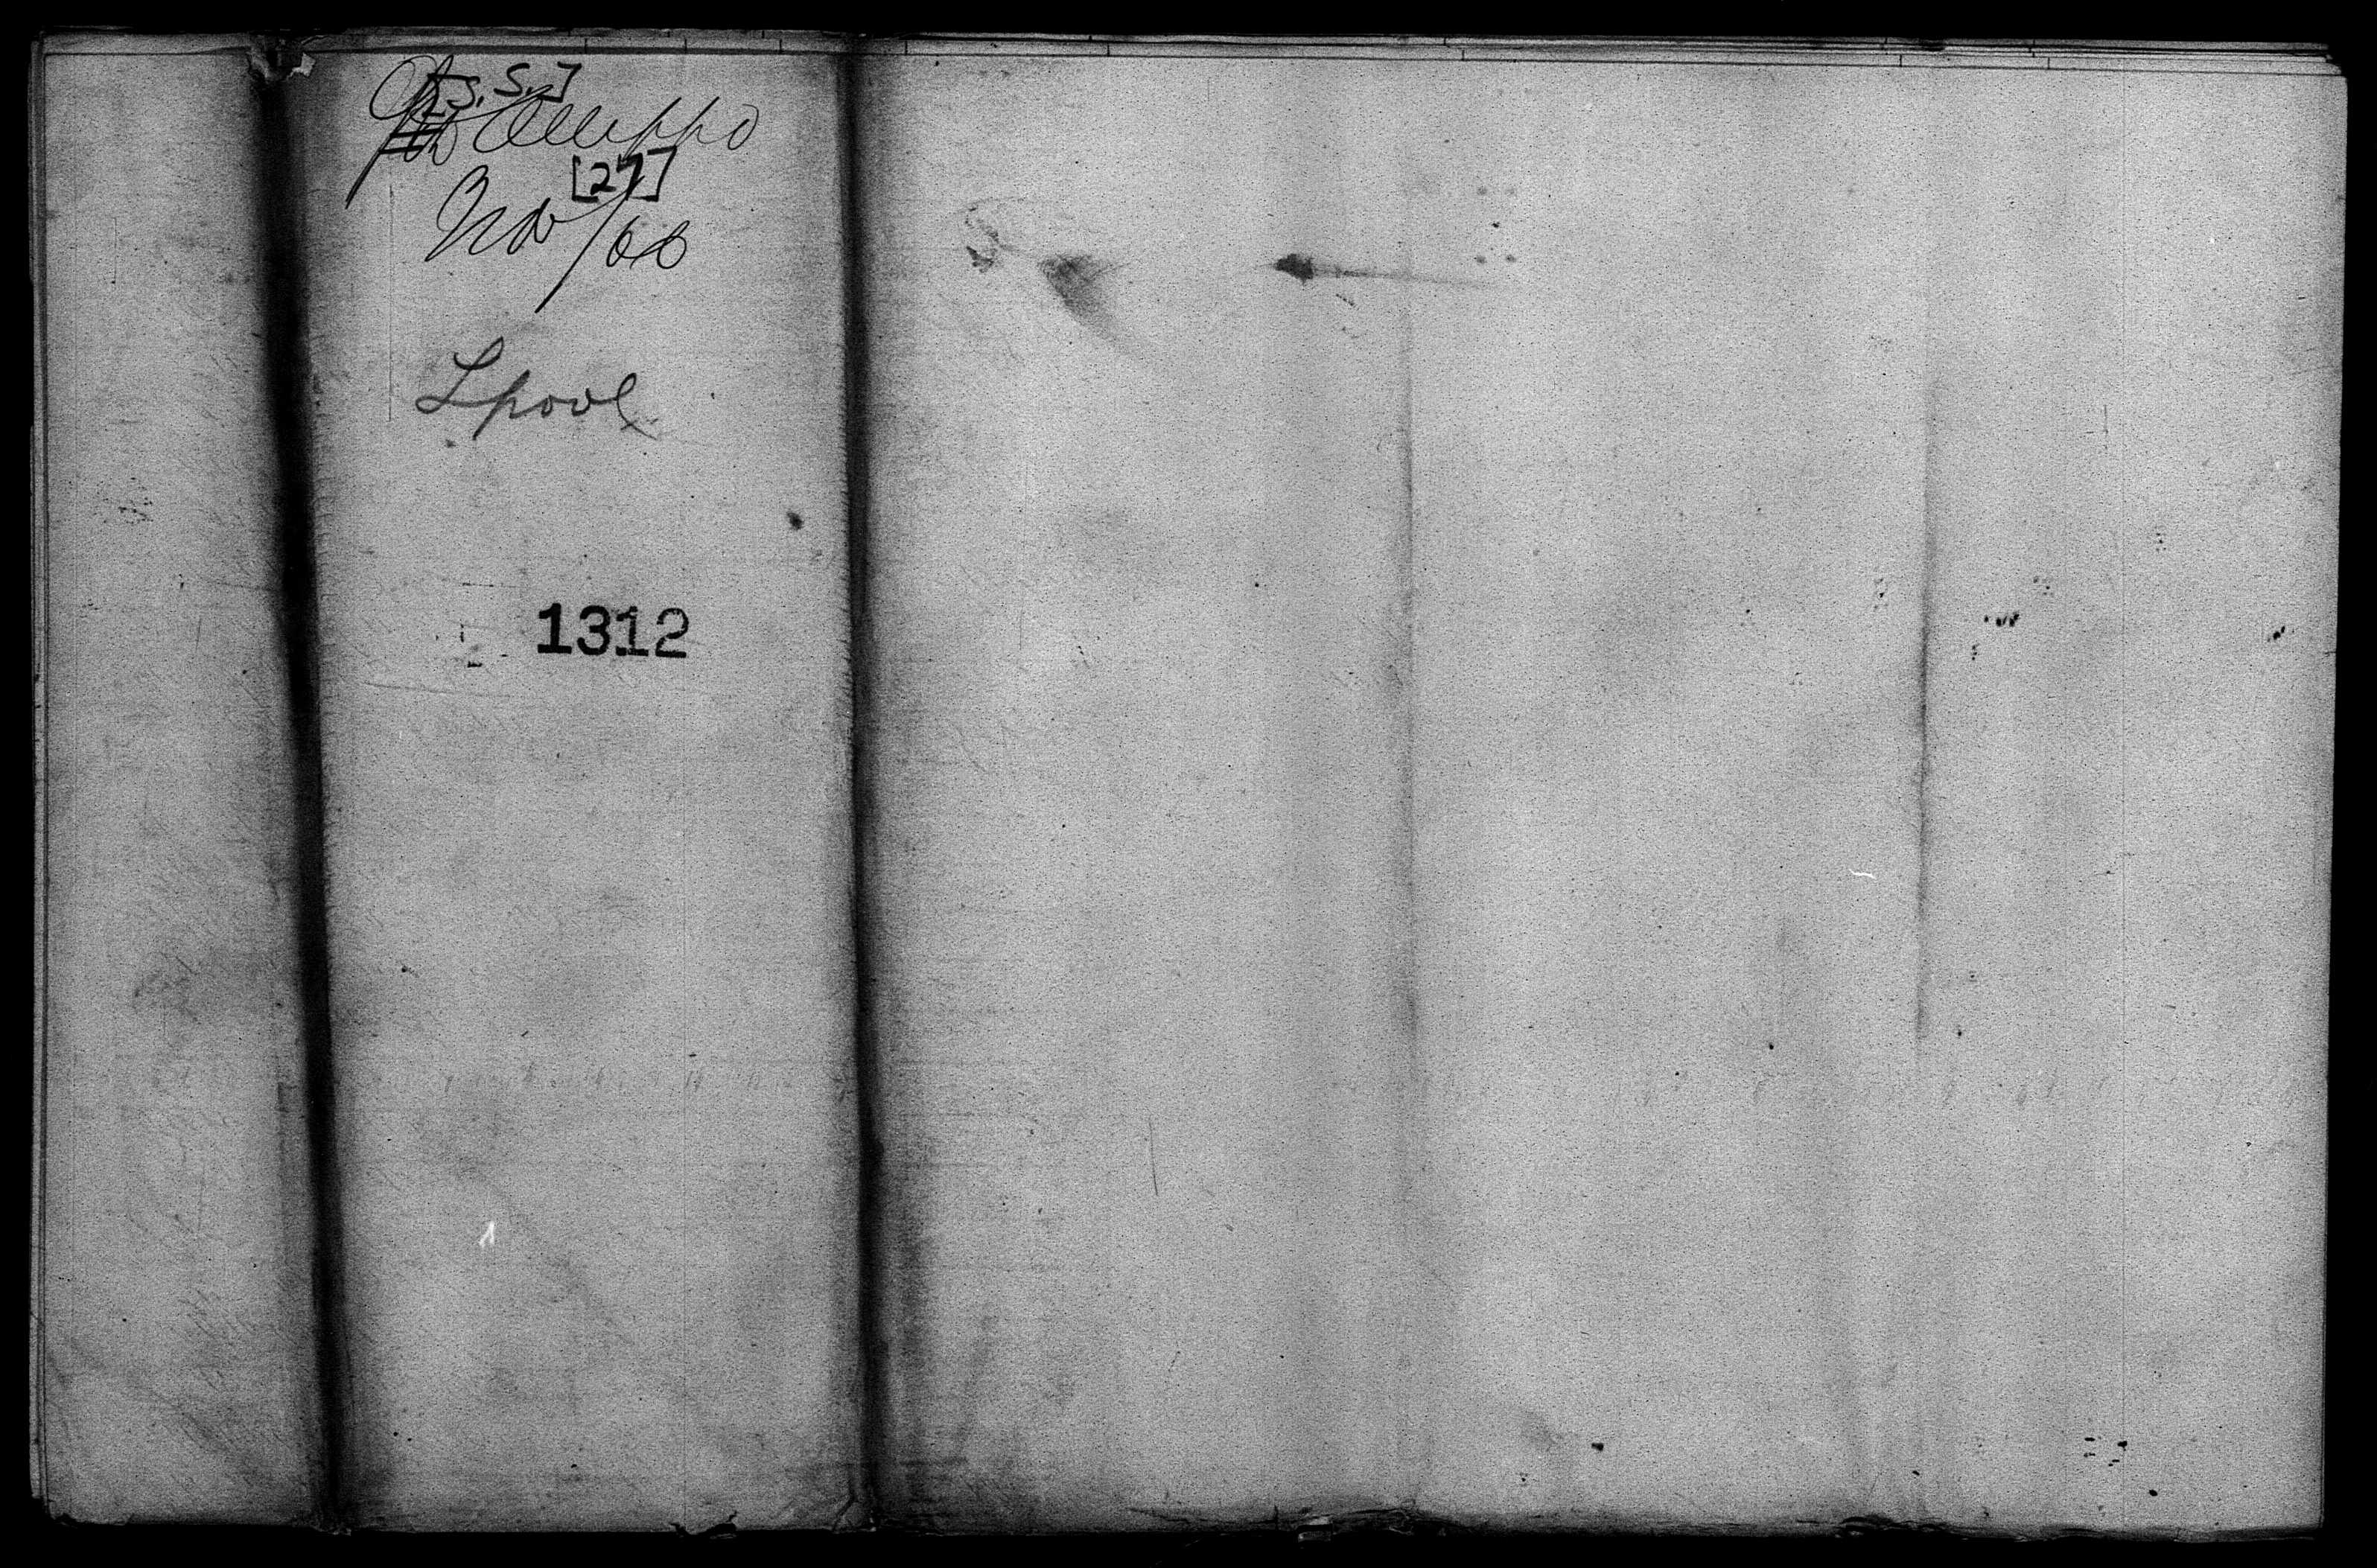 [S.S.]
Aleppo
[27]
Nov/68
Lpool
1312